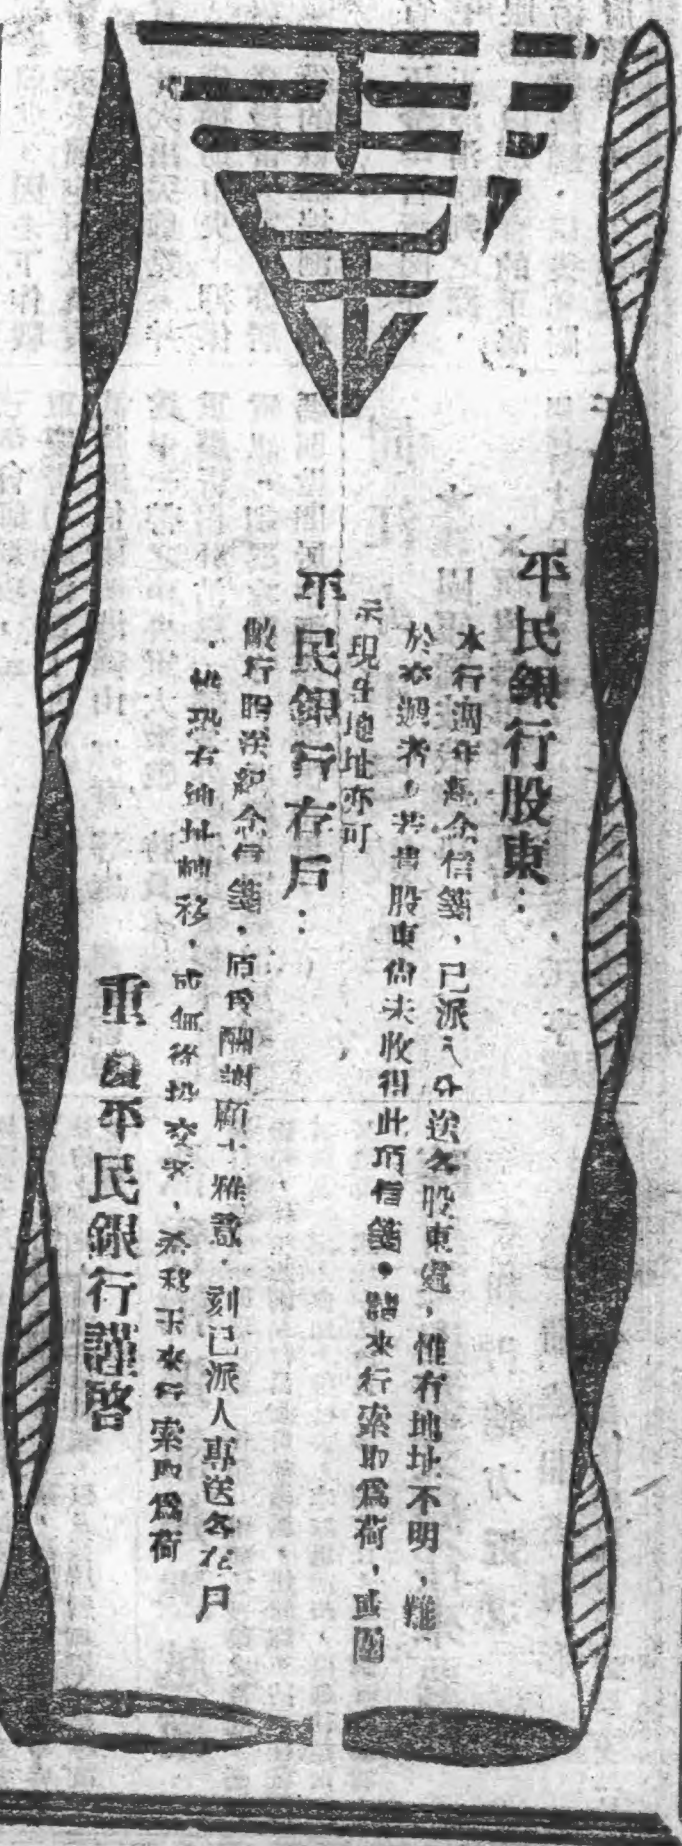 平民銀行股東：
本行週年紀念信箋，已派人分送各股東處，惟有地址不明，難
於亦週者，若貴股東尚未收得此項信箋，請來行索取爲荷，或
示現在地址亦可
平民銀行存戶：
敝行贈送紀念信箋，原爲酬謝顧主雅意，刻已派人專送各存戶
，惟恐有地址轉移，或無從投交者，希移玉來行索取爲荷
重慶平民銀行謹啓